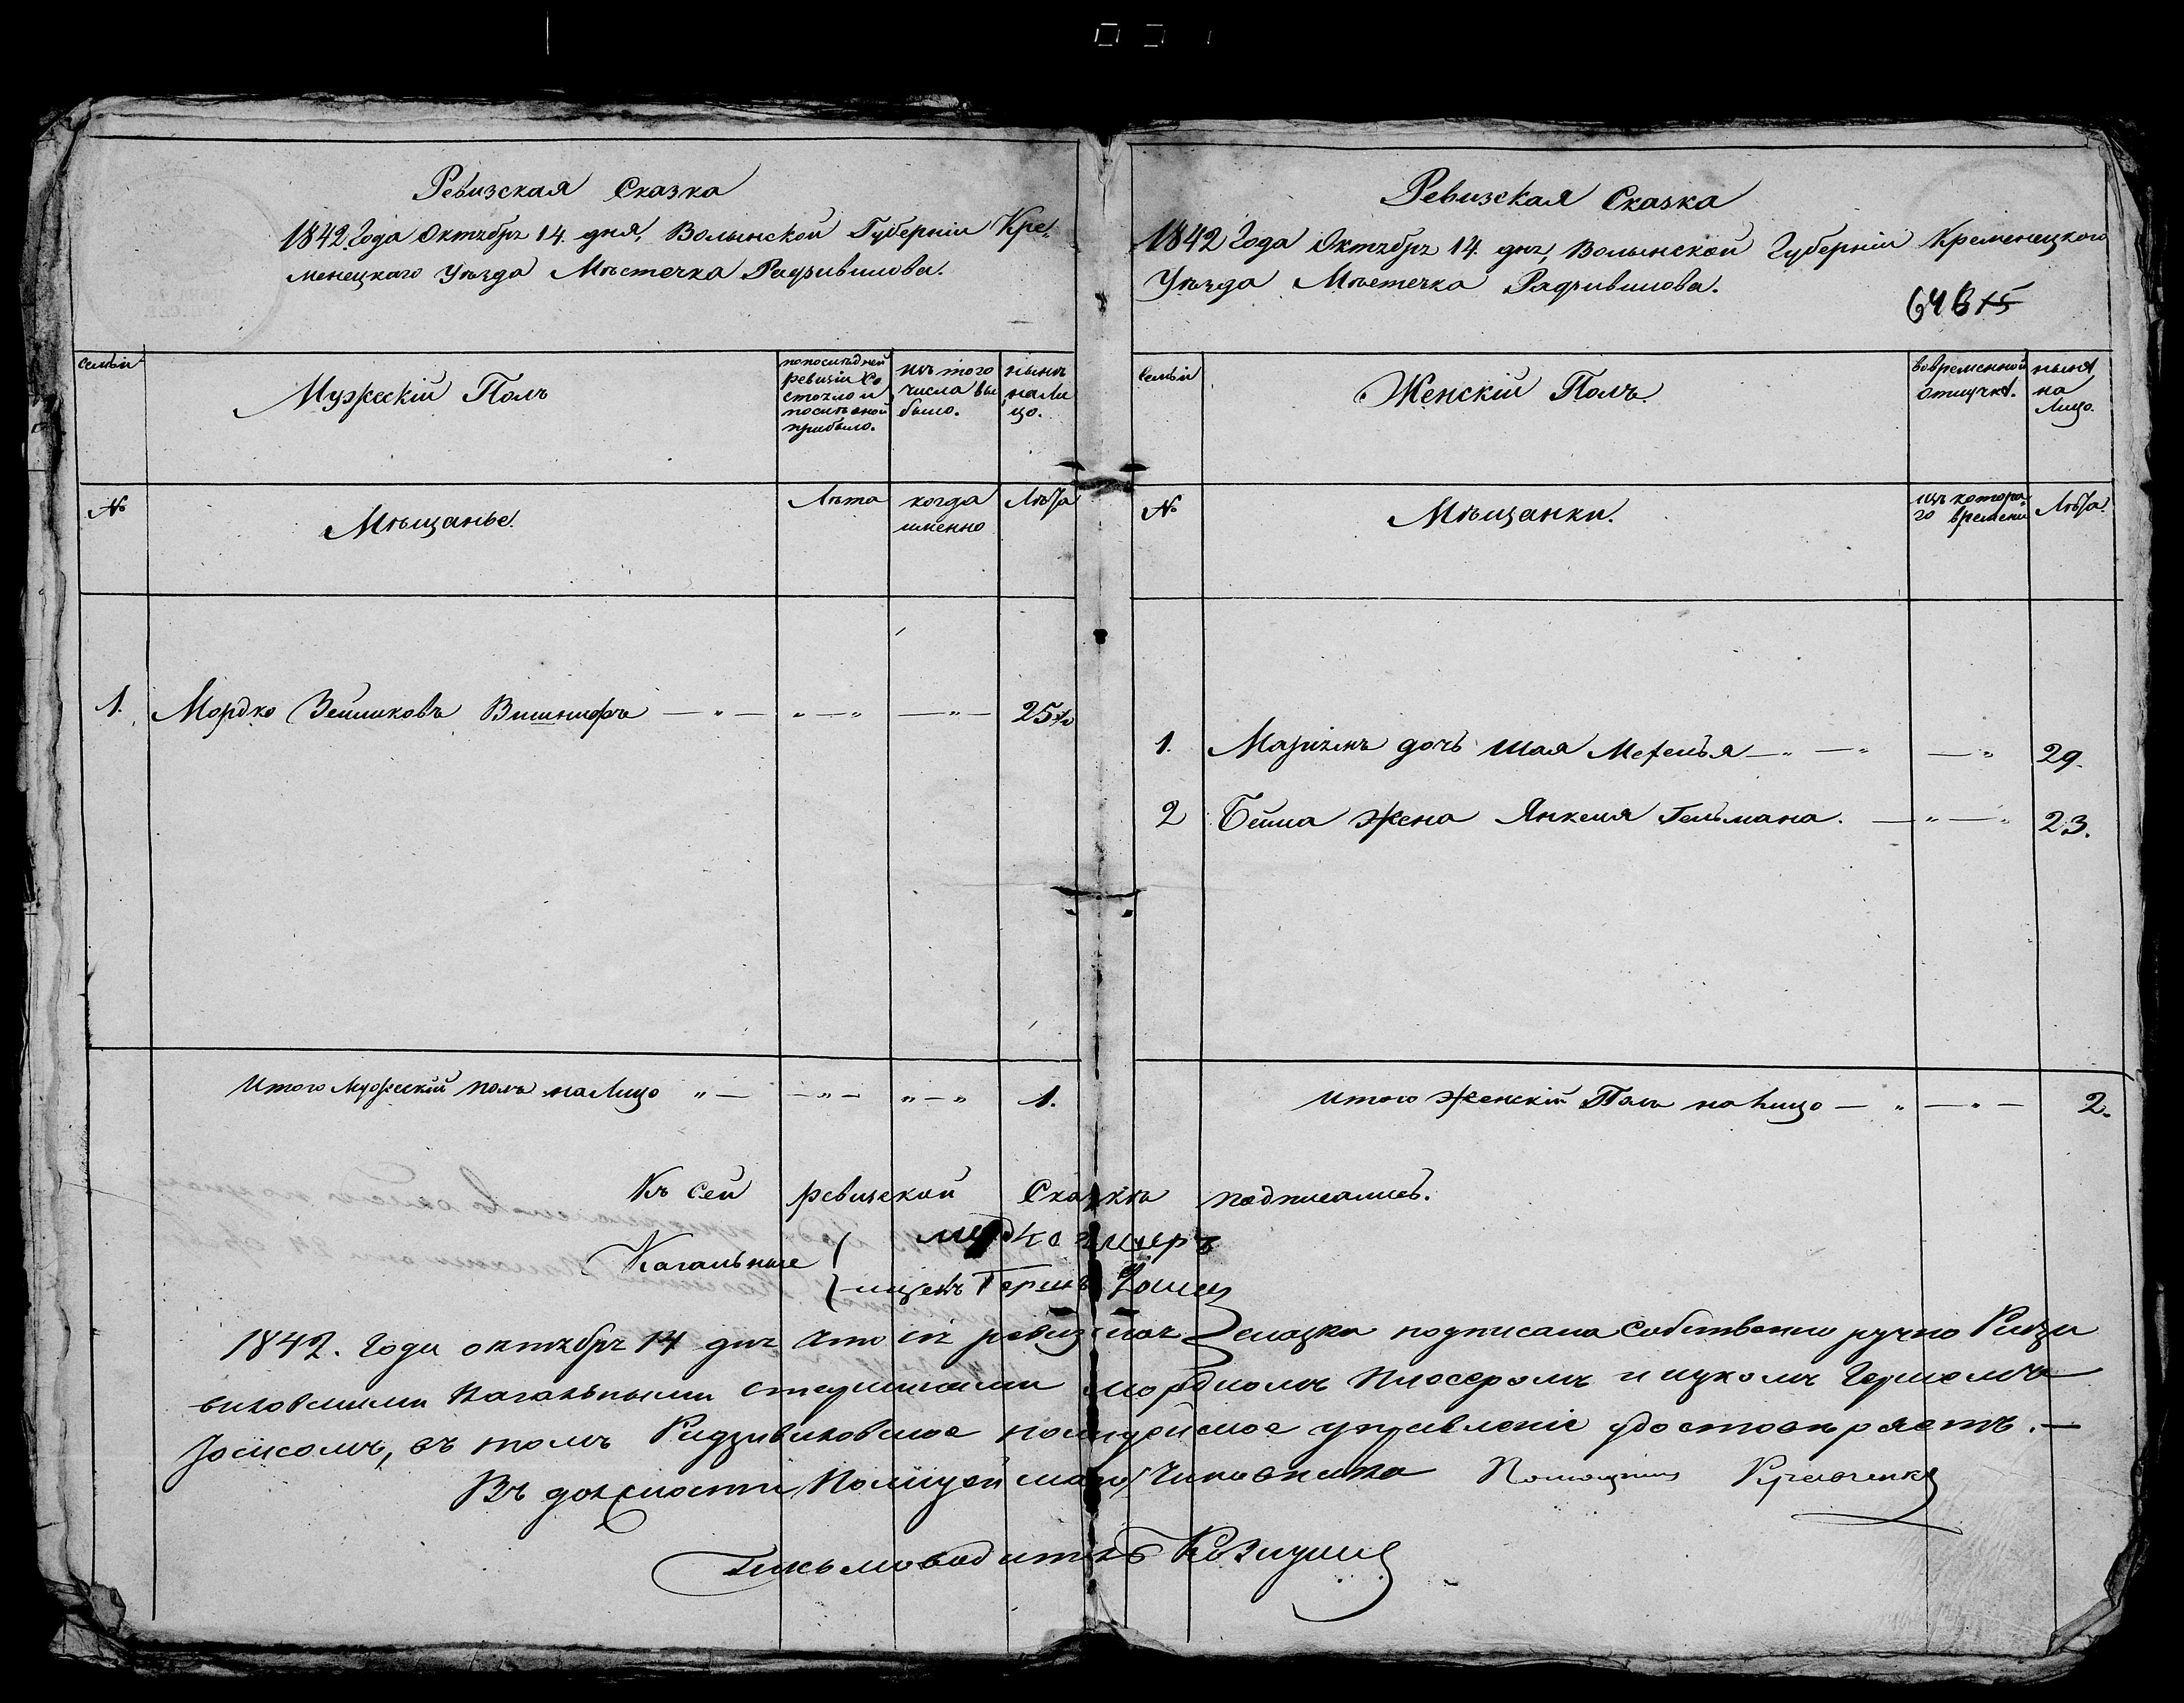 Ревизская Сказка
1842. Года Октября 14. дня, Волынской Губерніи Кре-
менецкаго Уѣзда Мѣстечка Радзивилова.
семьи
Мужескій Полъ
попослѣдней
ревизіи со
стояло и
послѣ оной
прибыло.
изъ того
числа вы
было.
нынѣ
нали
цо.
№
Мѣщанье.
Лѣта
когда
именно
Лѣта
1. Мордко Зейликовъ Вишнифъ 25
Итого Мужескій полъ налицо 1.
Ревизская Сказка
1842 Года Октября 14. дня, Волынской Губерніи Кременецкого
Уѣзда Мѣстечка Радзивилова.
семьи
Женскій Полъ.
вовременной
отлучкѣ.
нынѣ
на
лицо.
№
Мѣщанки.
изъ которо-
го времени
Лѣта.
1. дочь Шая 29.
2 Бейла жена Янкеля Гельмана. 23.
Итого Женскій Полъ налицо 2.
Къ сей ревизской Сказкѣ подписались.
Кагальные
Гершъ
1842. Года октября 14 дня что сія ревизская сказка подписана собственно ручно Радзи
виловскими Кагальными старшинами Мордкомъ и Ицкомъ Гершомъ
въ томъ Радзивиловское полицейское управленіе удостовѣряетъ.
Въ должности Полицейскаго Чиновника
Письмоводитель